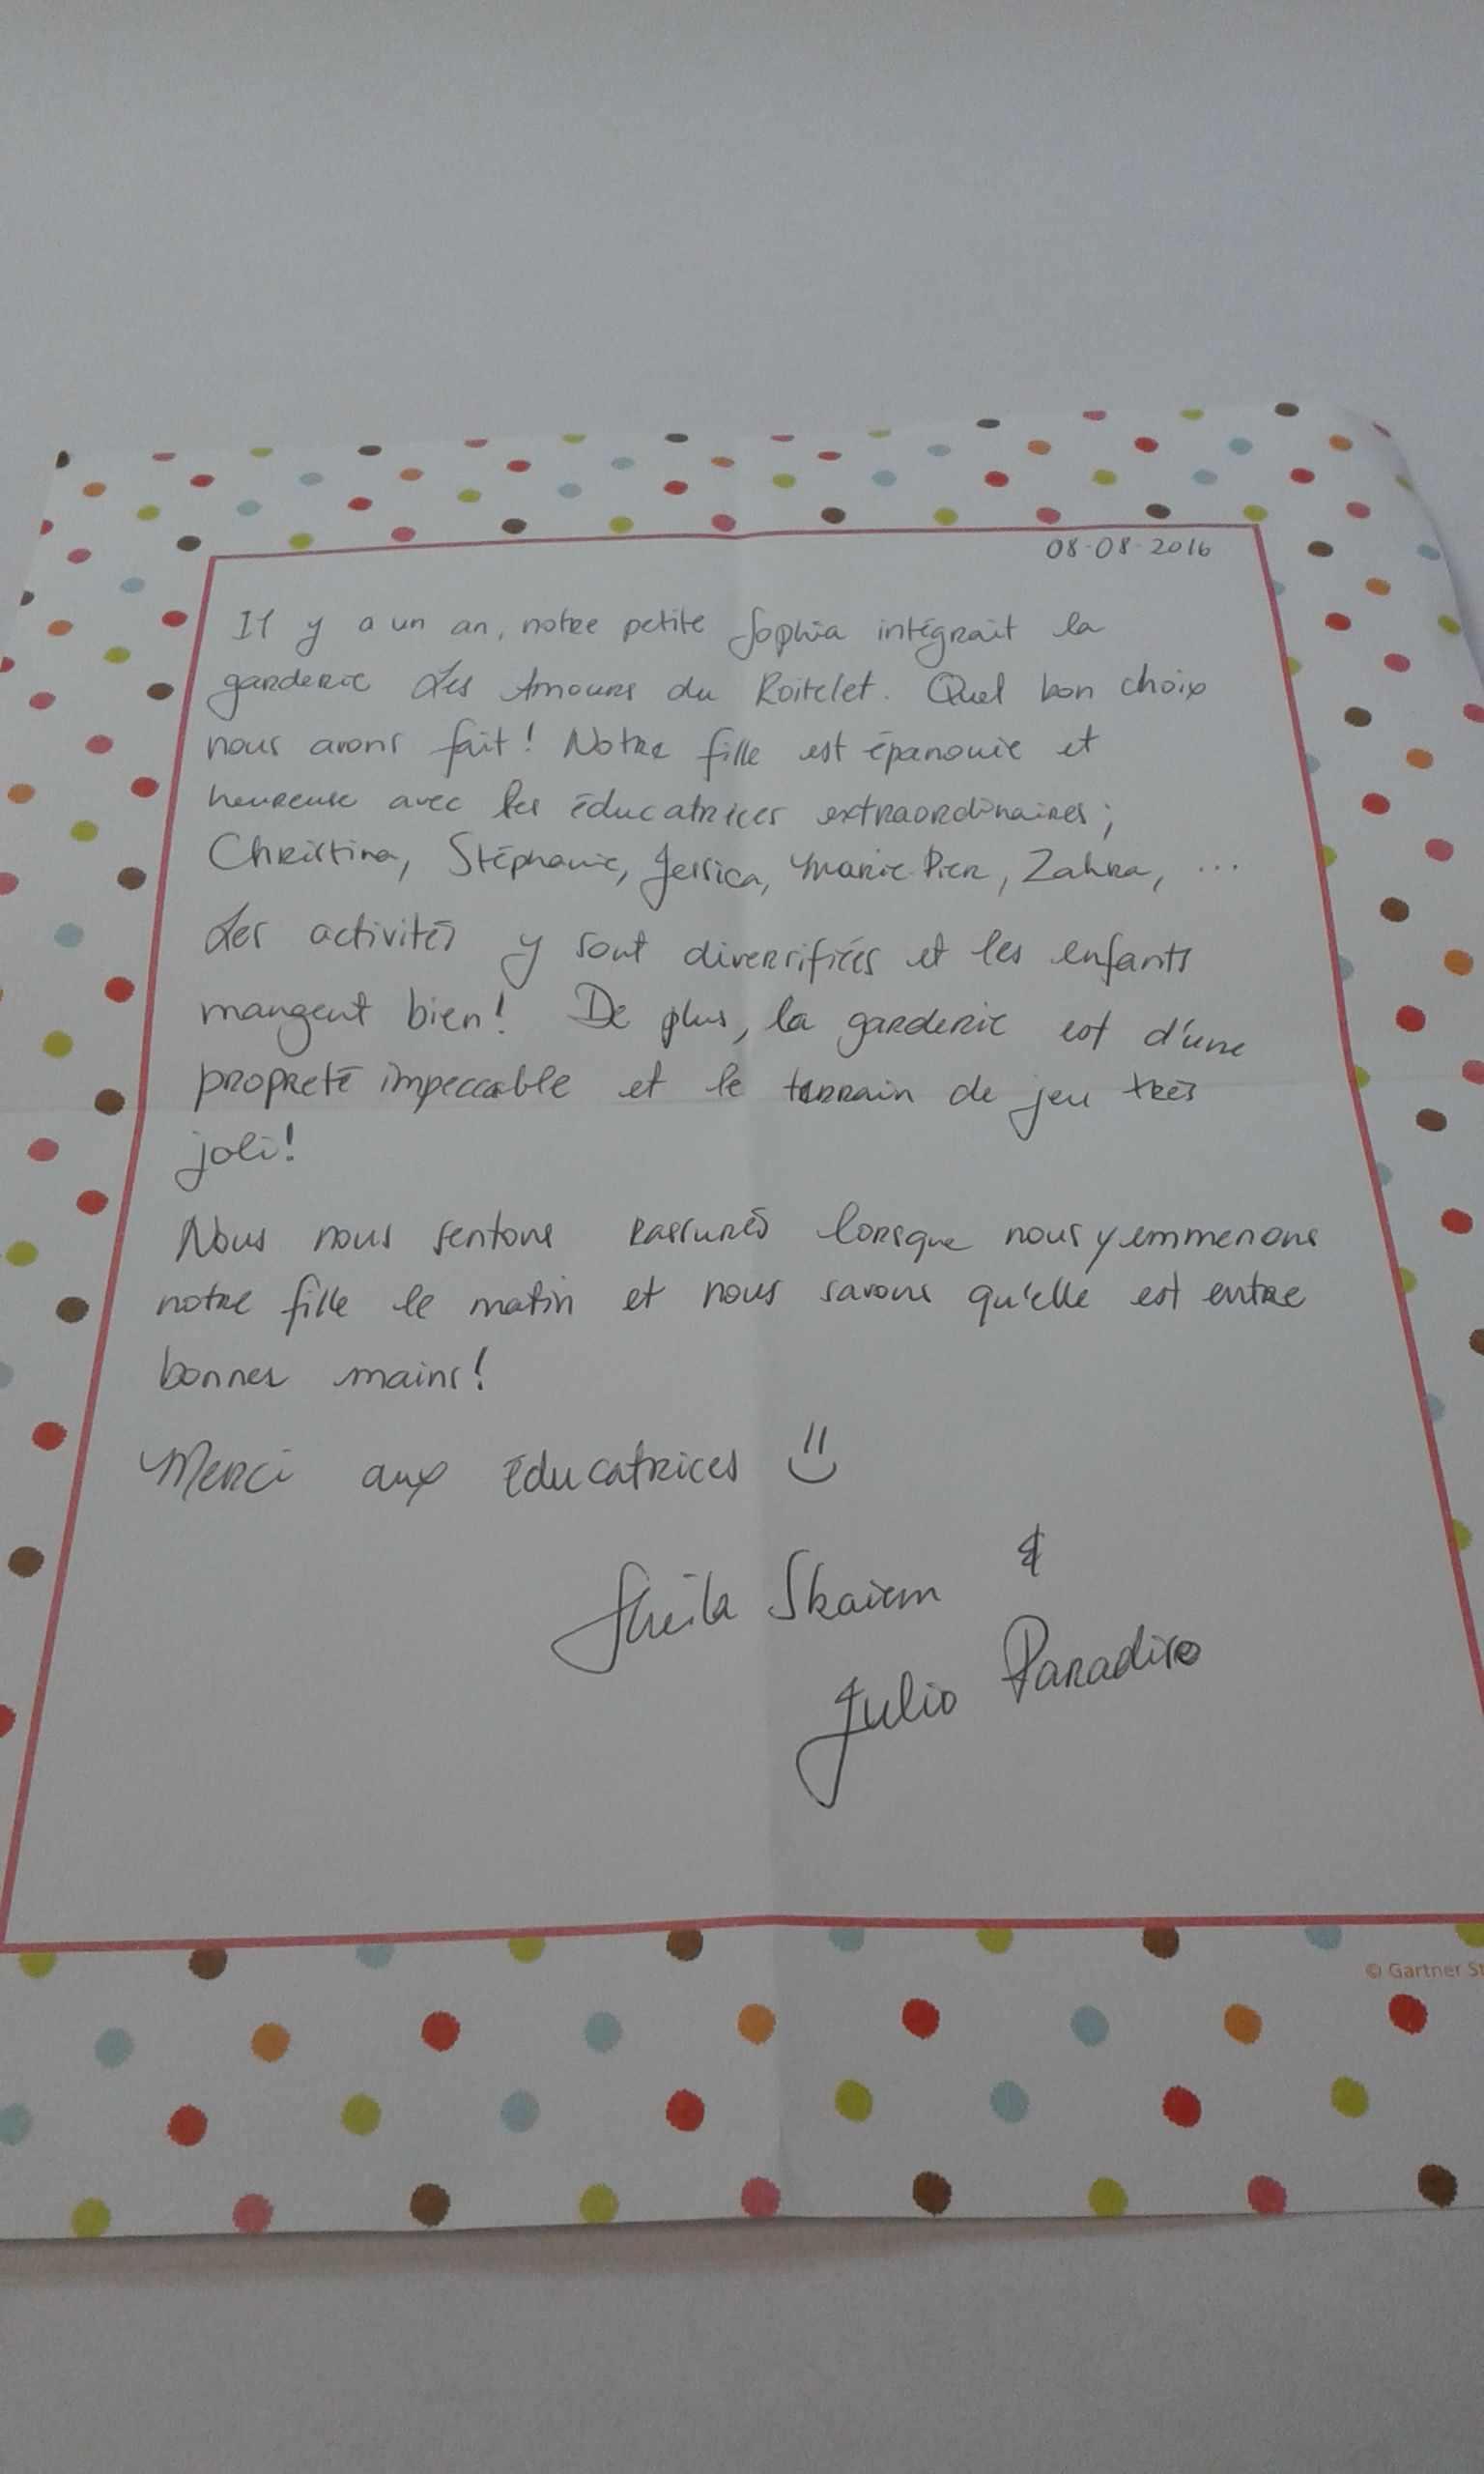 08-08-2016
Il y a un an, notre petite Sophia intégrait la
garderie Les Amours du Roitelet. Quel bon choix
nous avons fait! Notre fille est épanouie et
heureuse avec les éducatrices extraordinaires;
Christina, Stéphanie, Jessica, Marie-Pier, Zahra, ...
Les activités y sont diversifiées et les enfants
mangent bien! De plus, la garderie est d'une
propreté impeccable et le terrain de jeu très
joli!
Nous nous sentons rassurés lorsque nous y emmenons
notre fille le matin et nous savons qu'elle est entre
bonnes mains!
Merci aux éducatrices
Sheila Skaiem &
Julio Paradiso
© Gartner St